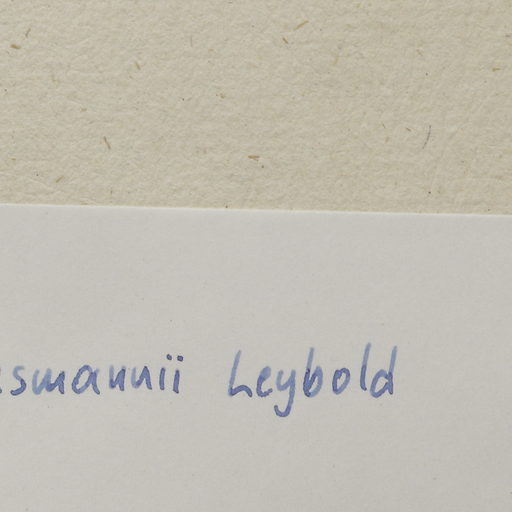 smannii Leybold